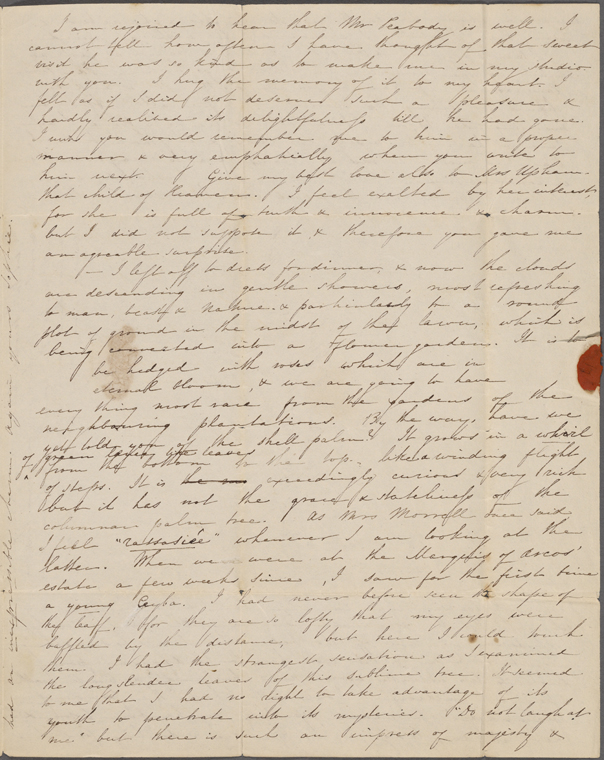 I am rejoiced to hear that Mr Peabody is well. I
cannot tell how often I have thought of that sweet
visit he was so kind as to make me in my studio
with you. I hug the memory of it to my heart. I
felt as if I did not deserve such a pleasure &
hardly realised its delightfulness till he had gone.
I wish you would remember me to him in a proper
manner & very emphatically when you write to
him next. Give my best love also to Mrs Upham.
that child of Heaven. I feel exalted by her interest
for she is full of truth & innocence & charm.
but I did not suppose it & therefore you gave me
an agreeable surprise.
— I left off to dress for dinner, & now the clouds
are descending in gentle showers, most refreshing
to man, beast & nature. & particularly to a round
plot of ground in the midst of the lawn, which is
being converted into a flower garden. It is to
be hedged with roses which are in
eternal bloom, & we are going to have
every thing most rare from the gardens of the
neighbouring plantations. By the way, have we
yet told you of the shell palm? It grows in a whorl
of green leaves
from the bottom to the top, like a winding flight
of steps. It is exceedingly curious & very rich
but it has not the grace & stateliness of the
columnar palm tree. As Mrs Morrell once said
I feel "rassasiée" whenever I am looking at the
latter. When we were at the Marquis of Arcos'
estate a few weeks since, I saw for the first time
a young Ceyba. I had never before seen the shape of
the leaf, for they are so lofty that my eyes were
baffled by the distance, but here I could touch
them. I had the strangest sensation as I examined
the long slender leaves of this sublime tree. It seemed
to me that I had no right to take advantage of its
youth to penetrate into its mysteries. "Do not laugh at
me." but there is such an impress of majesty &
had an inexpressible charm. Again yours